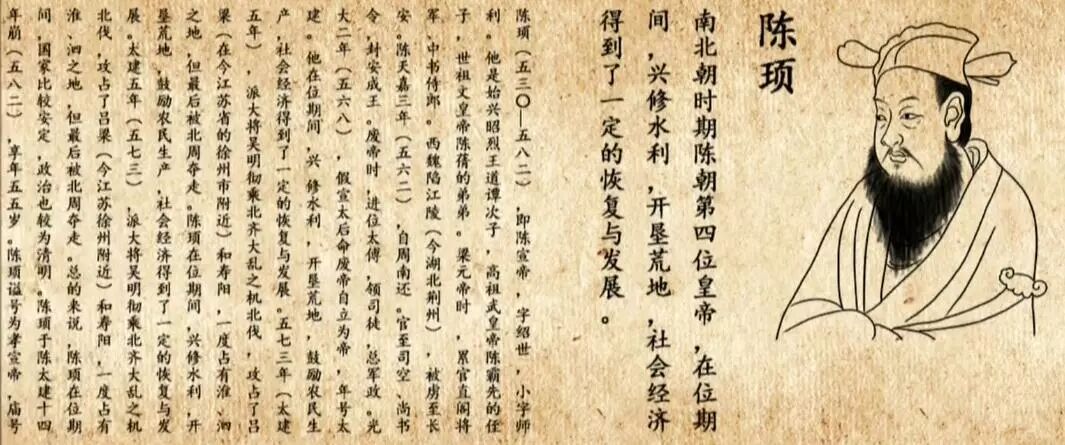 陈顼
南北朝时期陈朝第四位皇帝，在位期
间，兴修水利，开垦荒地，社会经济
得到了一定的恢复与发展。
陈顼（五三〇—五八二），即陈宣帝，字绍世，小字师
利。他是始兴昭烈王道谭次子，高祖武皇帝陈霸先的侄
子，世祖文皇帝陈蒨的弟弟。梁元帝时，累官直阁将
军、中书侍郎。西魏陷江陵（今湖北荆州），被虏至长
安。陈天嘉三年（五六二），自周南还。官至司空、尚书
令，封安成王。废帝时，进位太傅，领司徒，总军政。光
大二年（五六八），假宣太后命废帝自立为帝，年号太
建。他在位期间，兴修水利，开垦荒地，鼓励农民生
产，社会经济得到了一定的恢复与发展。五七三年（太建
五年），派大将吴明彻乘北齐大乱之机北伐，攻占了吕
梁（在今江苏省的徐州市附近）和寿阳，一度占有淮、泗
之地，但最后被北周夺走。陈顼在位期间，兴修水利，开
垦荒地，鼓励农民生产，社会经济得到了一定的恢复与发
展。太建五年（五七三），派大将吴明彻乘北齐大乱之机
北伐，攻占了吕梁（今江苏徐州附近）和寿阳，一度占有
淮、泗之地，但最后被北周夺走。总的来说，陈顼在位期
间，国家比较安定，政治也较为清明。陈顼于陈太建十四
年崩（五八二），享年五五岁。陈顼谥号为孝宣帝，庙号